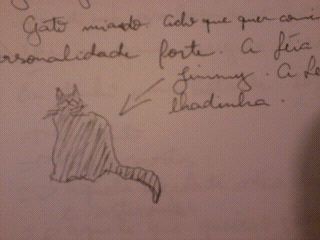 Gato miando. Acho que quer comi
ersonalidade forte. A féia
Jimmy. A Le
lhadinha.